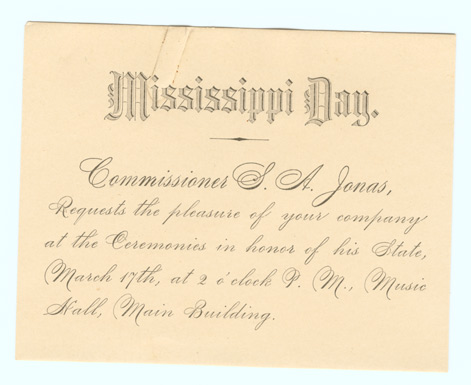 Mississippi Day.
Commissioner S. A. Jonas,
Requests the pleasure of your company
at the Ceremonies in honor of his State,
March 17th, at 2 o'clock P. M., Music
Hall, Main Building.